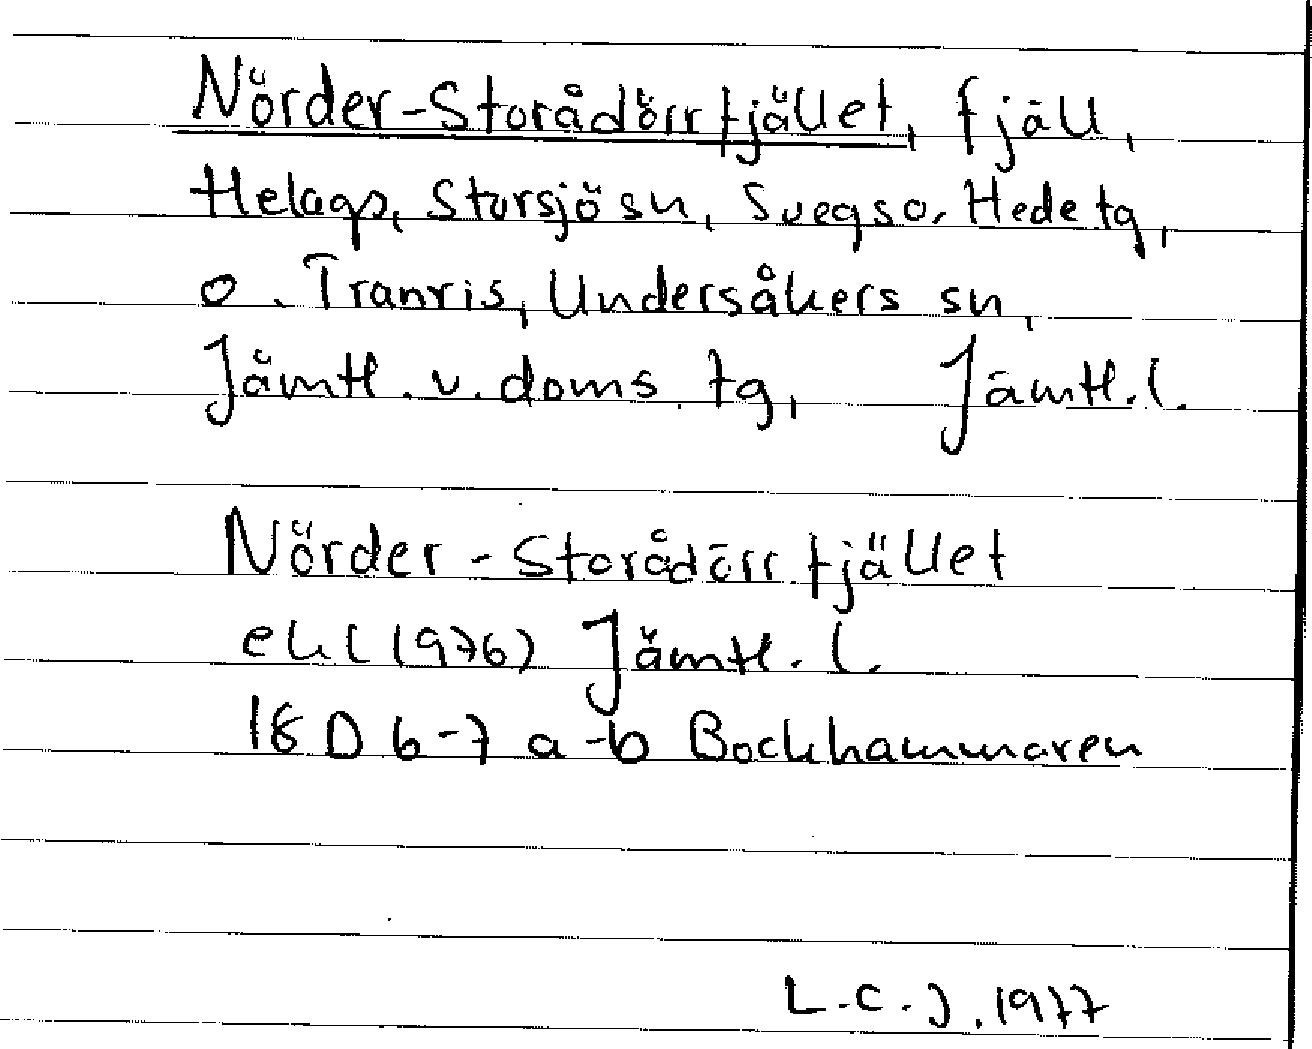 Nörder-Storådörrfjället, fjäll,
Helags, Storsjö sn, Svegs o. Hede tg,
o. Tranris, Undersåkers sn,
Jämtl. v. doms. tg, Jämtl. l.
Nörder-Storådörrfjället
ekl (1976) Jämtl. l.
18 D 6-7 a-b Bockhammaren
L.C.J. 1977